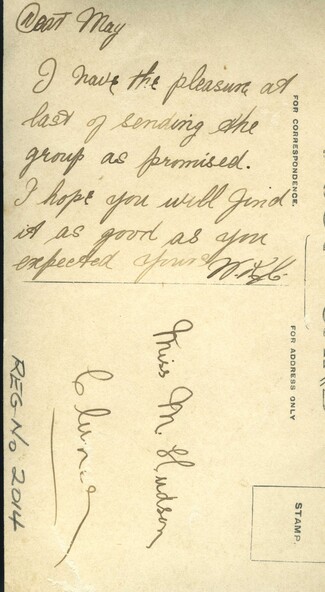 Dear May
I have the pleasure at
last of sending the
group as promised.
I hope you will find
it as good as you
expected Yours
FOR CORRESPONDENCE.
FOR ADDRESS ONLY
Miss M. Hudson
Clunes
STAMP.
REG No 2014